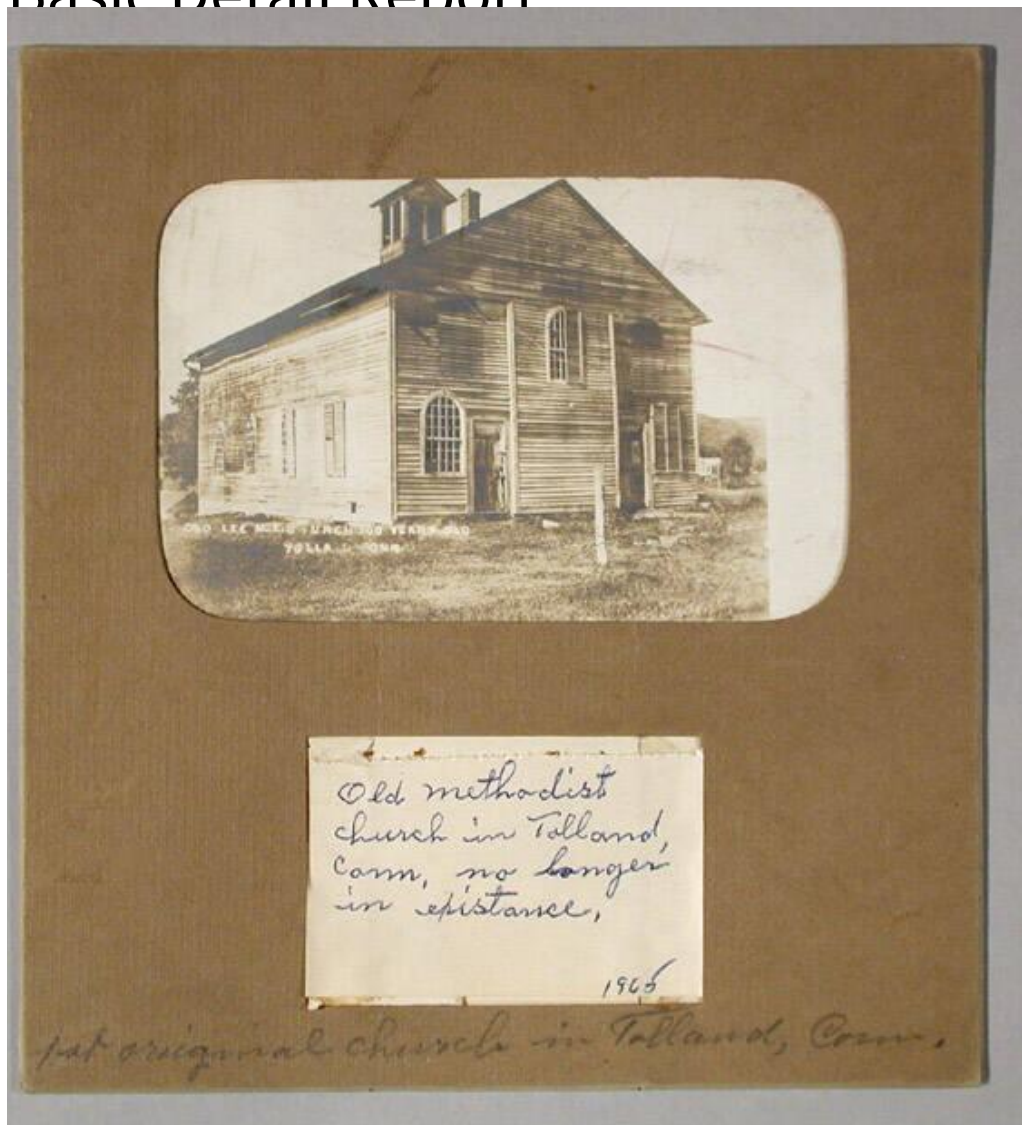 Basic Detail Report
OLD LEE M.E. CHURCH 100 YEARS OLD
TOLLAND CONN
Old methodist
church in Tolland,
Conn, no longer
in epistance,
1965
1st original church in Tolland, Conn.